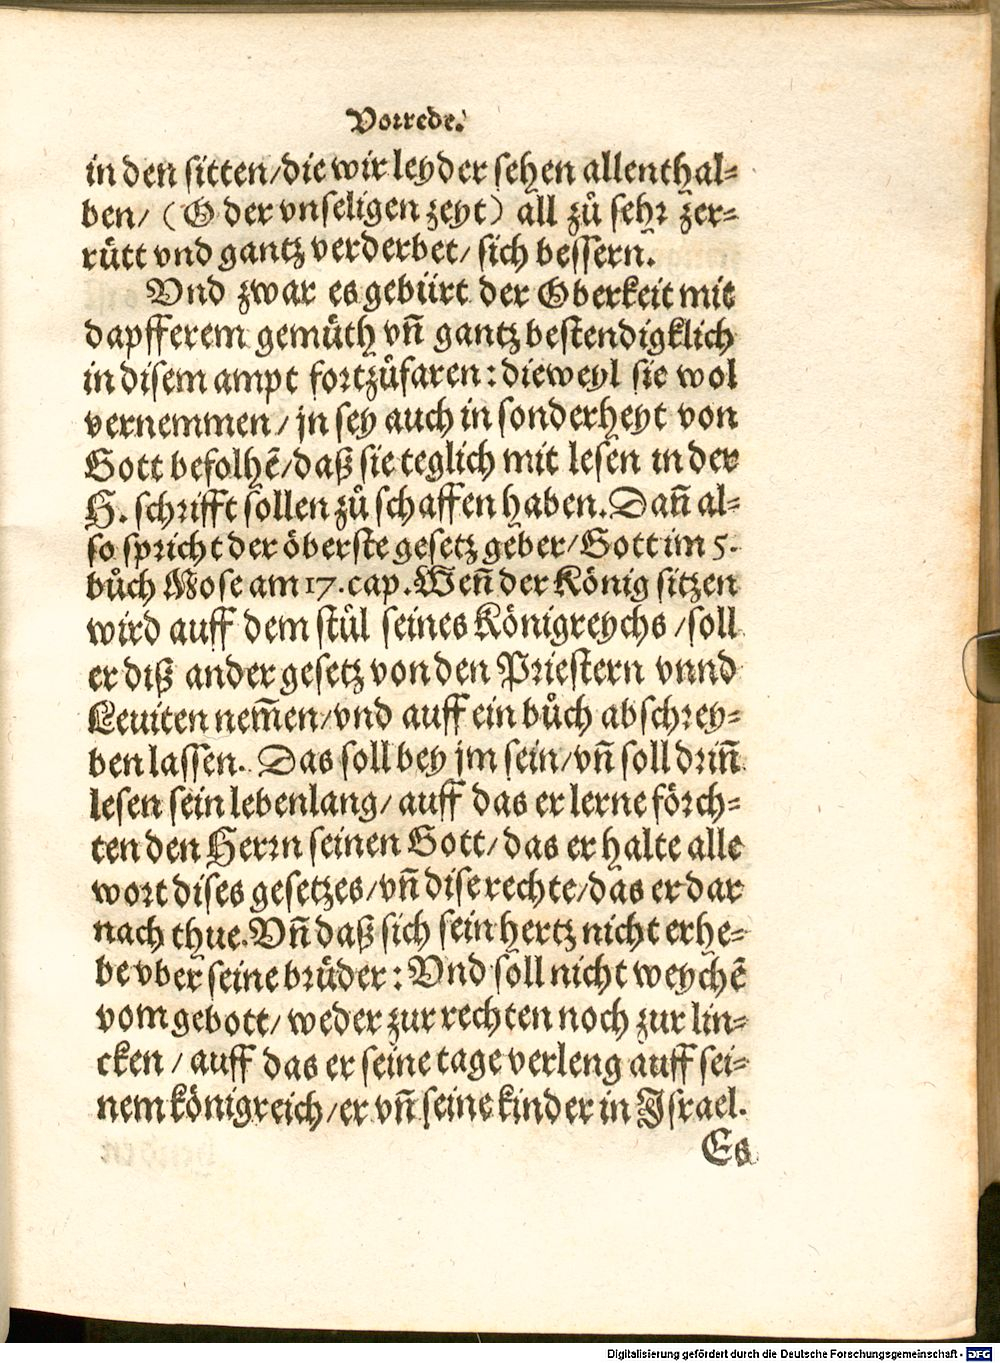 Vorrede.
in den sitten/die wir leyder sehen allenthal⸗
ben/ (O der vnseligen zeyt) all zů sehr zer⸗
rütt vnd gantz verderbet/ sich bessern.
Vnd zwar es gebürt der Oberkeit mit
dapfferem gemüth vñ gantz bestendigklich
in disem ampt fortzůfaren: dieweyl sie wol
vernemmen / jn sey auch in sonderheyt von
Gott befolhẽ/daß sie teglich mit lesen in der
H. schrifft sollen zů schaffen haben. Dañ al⸗
so spricht der öberste gesetz geber/Gott im 5.
bůch Mose am 17.cap. Weñ der König sitzen
wird auff dem stůl seines Königreychs /soll
er diß ander gesetz von den Priestern vnnd
Leuiten nem̃en/vnd auff ein bůch abschrey⸗
ben lassen. Das soll bey jm sein/vñ soll driñ
lesen sein lebenlang/ auff das er lerne förch⸗
ten den Herrn seinen Gott/das er halte alle
wort dises gesetzes/vñ dise rechte/das er dar
nach thue. Vñ daß sich sein hertz nicht erhe⸗
be vber seine brüder: Vnd soll nicht weychẽ
vom gebott/ weder zur rechten noch zur lin⸗
cken / auff das er seine tage verleng auff sei⸗
nem königreich/er vñ seine kinder in Israel.
Es
Digitalisierung gefördert durch die Deutsche Forschungsgemeinschaft - DFG